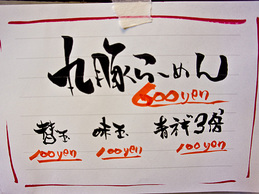 丸豚らーめん
600yen
替玉 味玉 青ネギ3倍
100yen 100yen 100yen